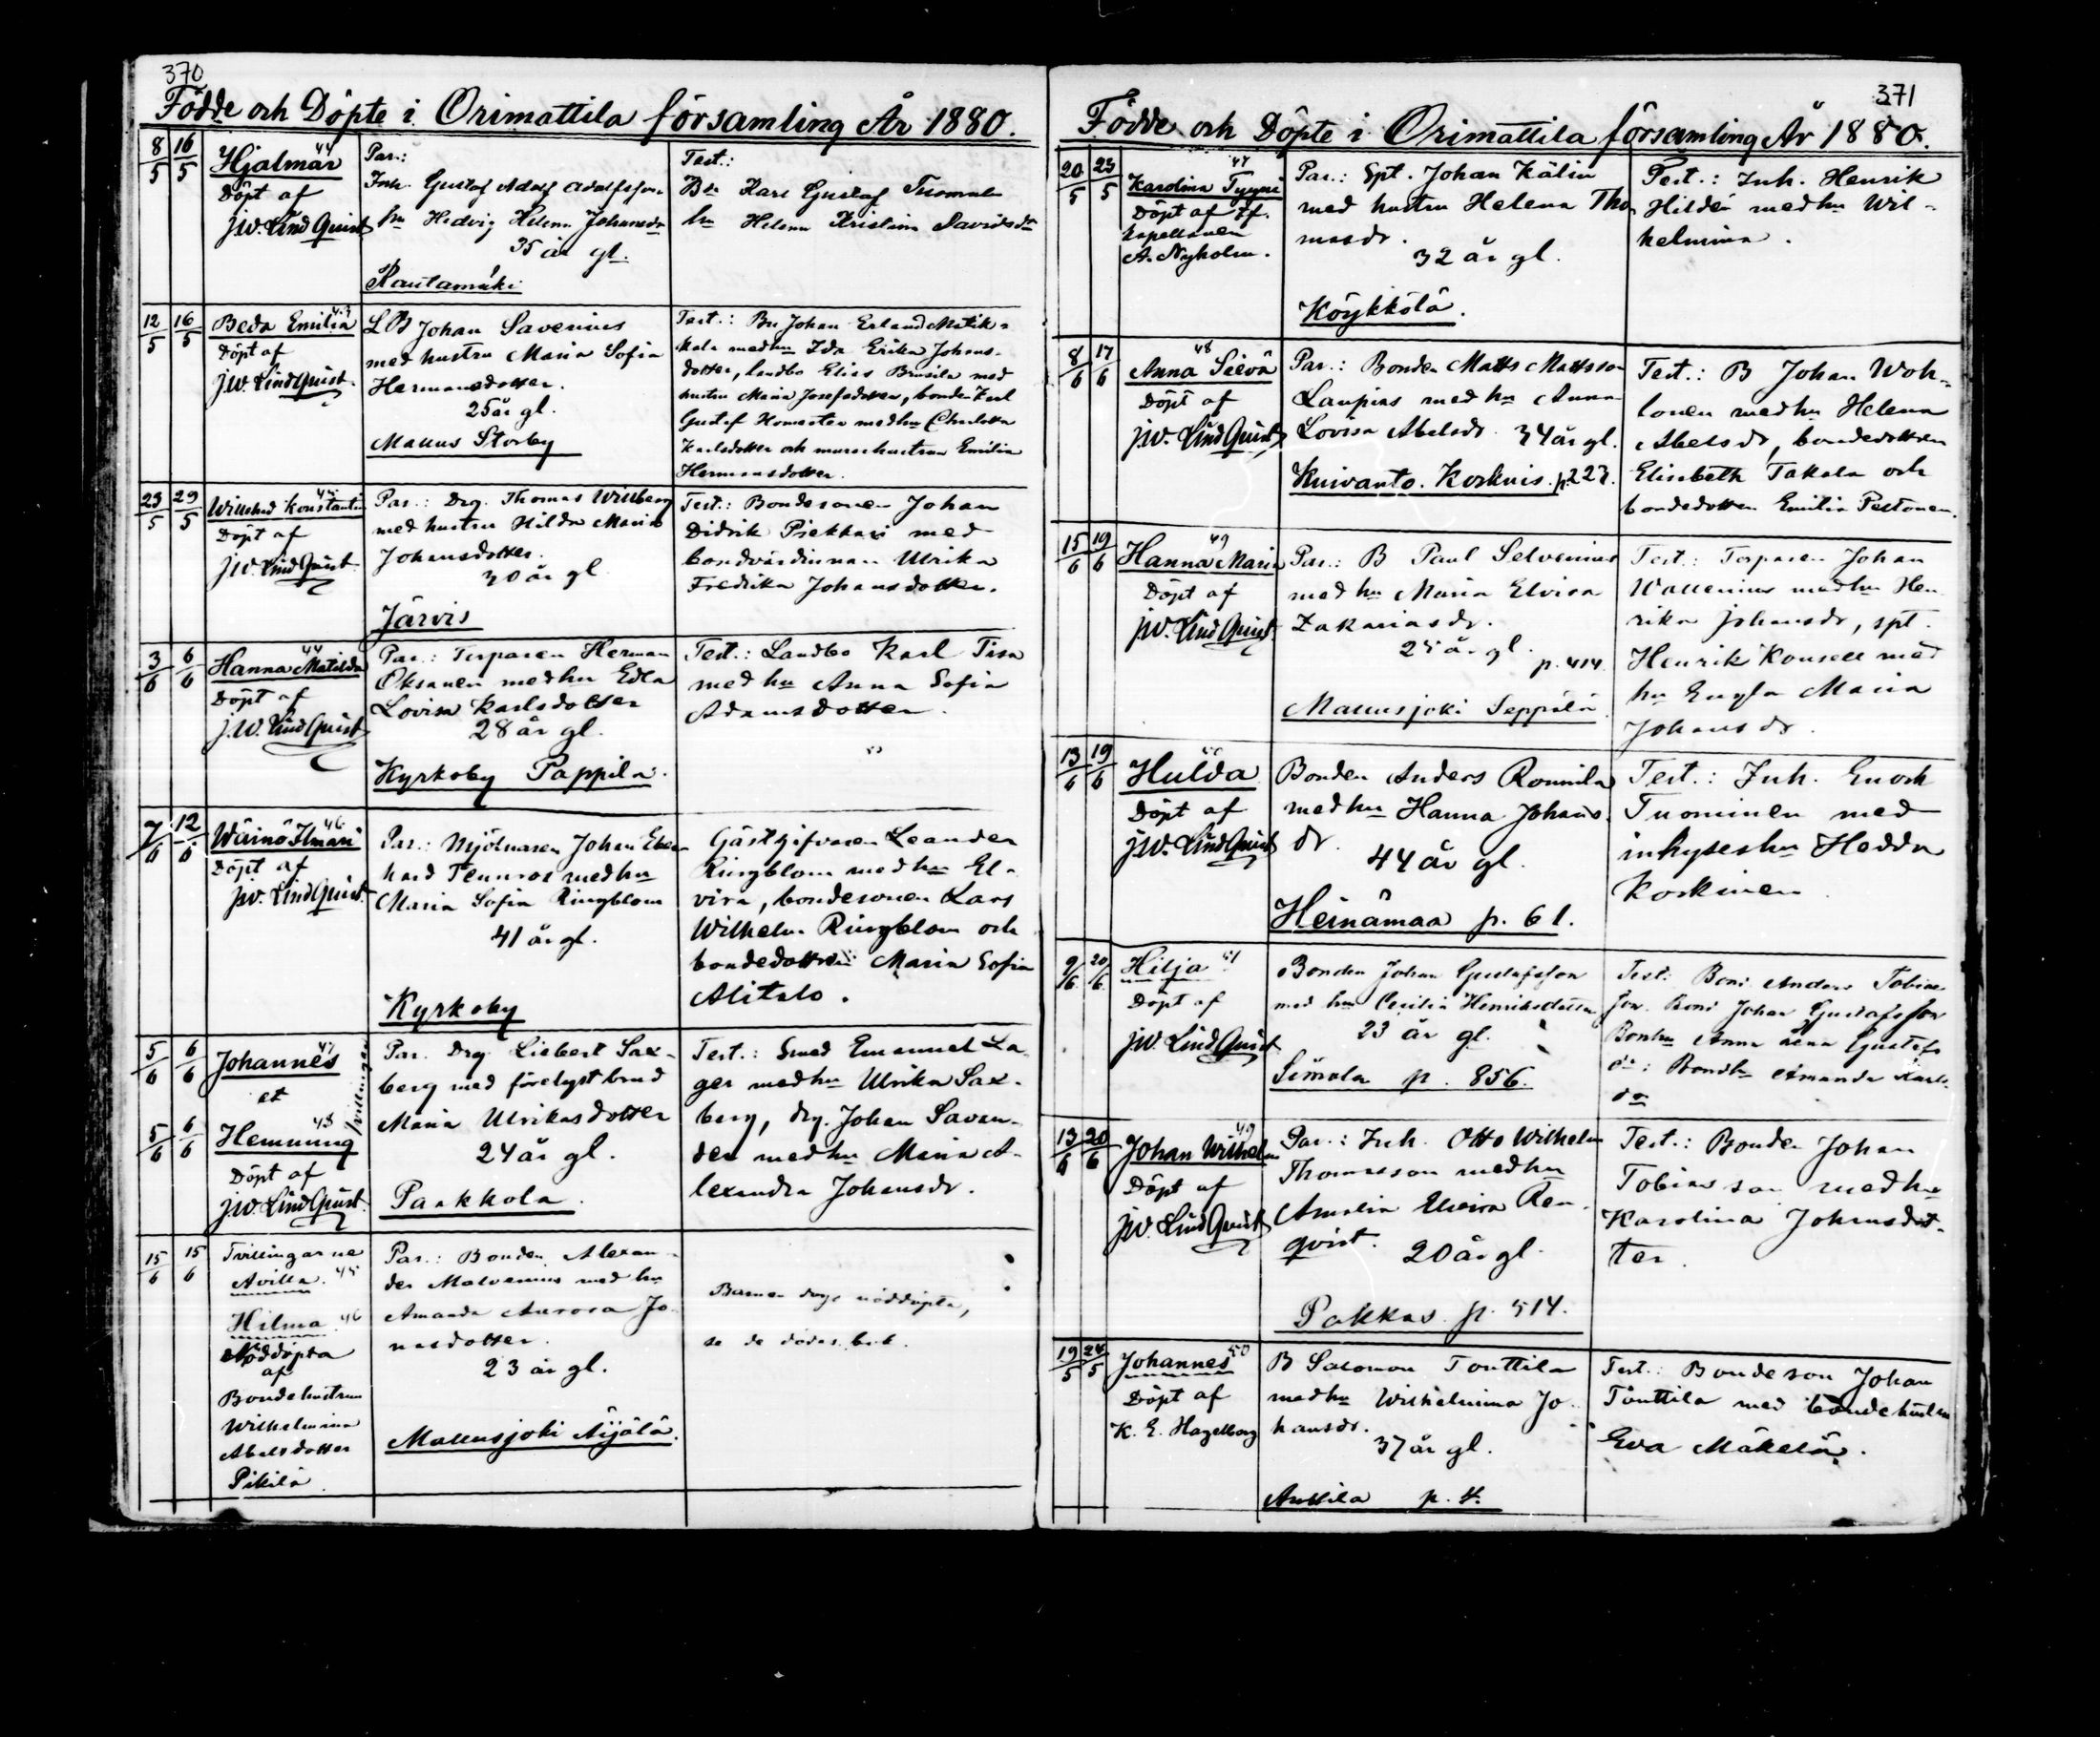 370
Födde och Döpte i Orimattila församling År 1880.
8/5 16/5
Hjalmar 44
Döpt af
J.W. LindQuist
Par.:
Inh. Gustaf Adolf Adolfsson
hu Hedvig Helena Johansdr
35 år gl.
Rautamäki
Test.:
Bn Karl Gustaf Tuomala
hu Helena Kristina Davidsdr
12/5 16/5
Beda Emilia 43
Döpt af
J.W. LindQuist
LB Johan Savenius
med hustru Maria Sofia
Hermansdotter.
25 år gl.
Mallus Storby
Test.: Bn Johan Erland Matik-
kala med hu Ida Erika Johans-
dotter, landbo Elias Brusila med
hustru Maria Josefsdotter, bonden Karl
Gustaf med hu Charlotta
Karlsdotter och hustrun Emilia
Hermansdotter.
23/5 29/5
Konstantin
Döpt af
J.W. LindQuist
Par.: Drg. Thomas Willberg
med hustru Hilda Maria
Johansdotter.
30 år gl
Järvis
Test.: Bondesonen Johan
Didrik Piekkari med
bondvärdinnan Ulrika
Fredrika Johansdotter.
3/6 6/6
Hanna Matilda 44
Döpt af
J.W. LindQuist
Par.: Torparen Herman
Oksanen med hu Edla
Lovisa Karlsdotter
28 år gl.
Kyrkoby Pappila.
Test.: Landbo Karl Tisa
med hu Anna Sofia
Adamsdotter.
7/6 12/6
Wäinö Ilmari 46
Döpt af
J.W. LindQuist.
Par.: Mjölnaren Johan Eber-
hard Tennros med hu
Maria Sofia Ringblom
41 år gl.
Kyrkoby
Gästgifvaren Leander
Ringblom med hu El-
vira, bondesonen Lars
Wilhelm Ringblom och
bondedottern Maria Sofia
Alitalo.
5/6 6/6
Johannes 47
et
5/6 6/6
Hemming 48
Tvillingar
Döpt af
J.W. LindQuist.
Par. Drg Liebert Sax-
berg med förelyst brud
Maria Ulrikasdotter
24 år gl.
Pakkola.
Test.: Smed Emanuel La-
ger med hu Ulrika Sax-
berg, drg. Johan Saven-
der med hu Maria A-
lexandra Johansdr.
15/6 15/6
Tvillingarne
Avilla. 45
Hilma 46
Nöddöpta
af
Bondehustrun
Wilhelmina
Abelsdotter
Pikilä.
Par.: Bonden Alexan-
der Malvenius med hu
Amanda Aurora Jo-
nasdotter.
23 år gl.
Mallusjoki Äijälä.
Barnen dogo nöddöpta,
se de dödas bok.
371
Födde och Döpte i Orimattila församling År 1880.
20/5 23/5
Karolina Tyyni 47
Döpt af tf.
kapellanen
A. Nyholm.
Par.: Spt. Johan Kälin
med hustru Helena Tho-
masdr.
32 år gl.
Köykkölä.
Test.: Inh. Henrik
Hildén med hu Wil-
helmina.
8/6 17/6
Anna Sievä 48
Döpt af
J.W. LindQuist
Par.: Bonden Matts Mattsson
Laupias med hu Anna
Lovisa Abelsdr. 34 år gl.
Kuivanto. Korkuis. p. 227.
Test.: B Johan Woh-
lonen med hu Helena
Abelsdr, bondedottern
Elisabeth Takala och
bondedottern Emilia Pestonen.
15/6 19/6
Hanna Maria 49
Döpt af
J.W. LindQuist
Par.: B Paul Selvenius
med hu Maria Elvira
Zakariasdr.
25 år gl.
p. 414.
Mallusjoki Seppälä.
Test.: Torparen Johan
Wallenius med hu Hen-
rika Johansdr, spt.
Henrik Konsell med
hu Engla Maria
Johansdr.
13/6 19/6
Hulda 50
Döpt af
J.W. LindQuist
Bonden Anders Ronnila
med hu Hanna Johans-
dr.
44 år gl.
Heinämaa p. 61.
Test.: Inh. Enoch
Tuominen med
inhyseshu Hedda
Korkinen
9/6 20/6
Hilja 51
Döpt af
J.W. LindQuist
Bonden Johan Gustafsson
med hu Cecilia Henriksdotter
23 år gl.
Simola p. 856.
Test: Bond Anders Tobias-
son. Bond Johan Gustafsson
Bonhu Anna Lena Gustafs
dr: Bondh Amanda Karls-
dr
13/6 20/6
Johan Wilhelm 49
Döpt af
J.W. LindQuist
Par.: Inh. Otto Wilhelm
Thomasson med hu
Amalia Elvira Ren-
qvist. 20 år gl.
Pakkas p. 514.
Test.: Bonden Johan
Tobiasson med hu
Karolina Johansdot-
ter.
19/5 24/5
Johannes 50
Döpt af
K. E. Hagelberg
B Salomon Tönttilä
med hu Wilhelmina Jo-
hansdr.
37 år gl.
Anttila p. 4.
Test.: Bondeson Johan
Tönttilä med bondehustru
Eva Mäkelä.